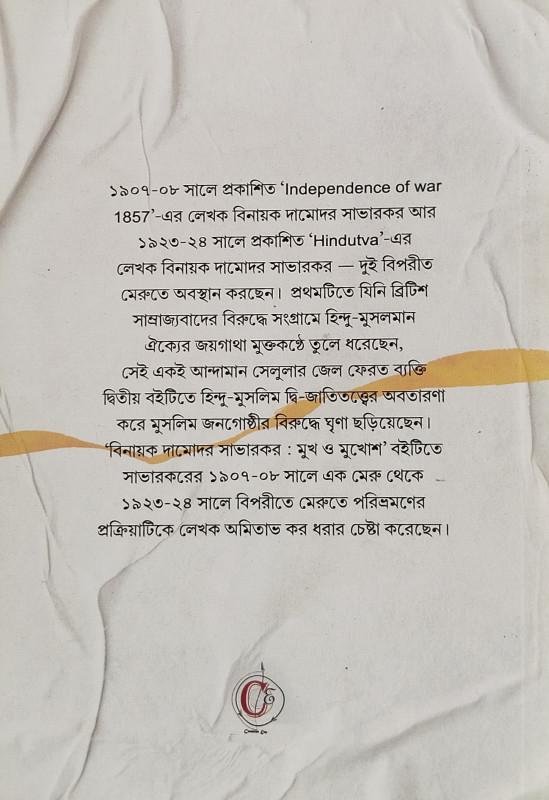 ১৯০৭-০৮ সালে প্রকাশিত ‘Independence of war
1857’-এর লেখক বিনায়ক দামোদর সাভারকর আর
১৯২৩-২৪ সালে প্রকাশিত ‘Hindutva’-এর
লেখক বিনায়ক দামোদর সাভারকর — দুই বিপরীত
মেরুতে অবস্থান করছেন। প্রথমটিতে যিনি ব্রিটিশ
সাম্রাজ্যবাদের বিরুদ্ধে সংগ্রামে হিন্দু-মুসলমান
ঐক্যের জয়গাথা মুক্তকণ্ঠে তুলে ধরেছেন,
সেই একই আন্দামান সেলুলার জেল ফেরত ব্যক্তি
দ্বিতীয় বইটিতে হিন্দু-মুসলিম দ্বি-জাতিতত্ত্বের অবতারণা
করে মুসলিম জনগোষ্ঠীর বিরুদ্ধে ঘৃণা ছড়িয়েছেন।
‘বিনায়ক দামোদর সাভারকর : মুখ ও মুখোশ’ বইটিতে
সাভারকরের ১৯০৭-০৮ সালে এক মেরু থেকে
১৯২৩-২৪ সালে বিপরীতে মেরুতে পরিভ্রমণের
প্রক্রিয়াটিকে লেখক অমিতাভ কর ধরার চেষ্টা করেছেন।